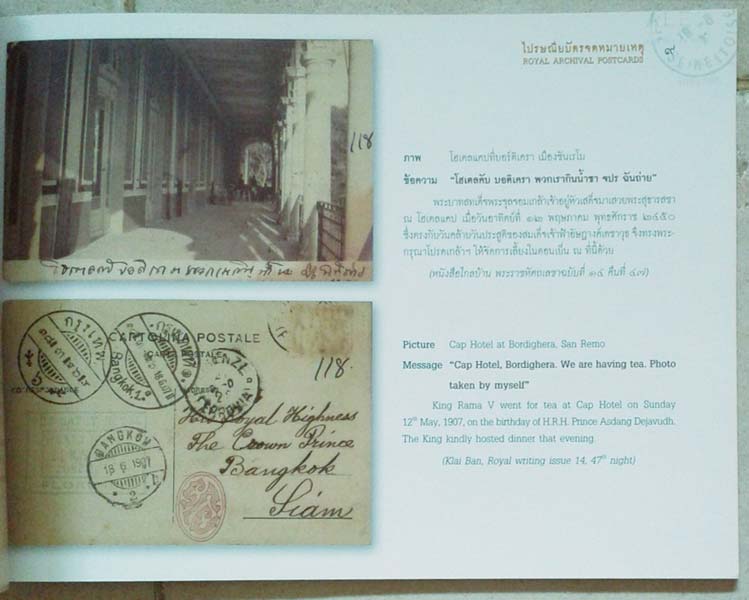 ไปรษณียบัตรจดหมายเหตุ
ROYAL ARCHIVAL POSTCARDS
๙
118
ภาพ โฮเตลแคปที่บอร์ดิเครา เมืองซันเรโม
ข้อความ “โฮเตลคับ บอดิเครา พวกเรากินน้ำชา จปร ฉันถ่าย”
พระบาทสมเด็จพระจุลจอมเกล้าเจ้าอยู่หัวเสด็จมาเสวยพระสุธารสชา
ณ โฮเตลแคป เมื่อวันอาทิตย์ที่ ๑๒ พฤษภาคม พุทธศักราช ๒๔๕๐
ซึ่งตรงกับวันคล้ายวันประสูติของสมเด็จเจ้าฟ้าอัษฎางค์เดชาวุธ จึงทรงพระ-
กรุณาโปรดเกล้าฯ ให้จัดการเลี้ยงในตอนเย็น ณ ที่นี้ด้วย
(หนังสือไกลบ้าน พระราชหัตถเลขาฉบับที่ ๑๔ คืนที่ ๔๗)
Picture Cap Hotel at Bordighera, San Remo
Message “Cap Hotel, Bordighera. We are having tea. Photo
taken by myself”
King Rama V went for tea at Cap Hotel on Sunday
12th May, 1907, on the birthday of H.R.H. Prince Asdang Dejavudh.
The King kindly hosted dinner that evening.
(Klai Ban, Royal writing issue 14, 47th night)
CARTOLINA POSTALE
118.
กรุงเทพ
Bangkok
BANGKOK
18 6 1907
2
His Royal Highness
The Crown Prince
Bangkok
Siam